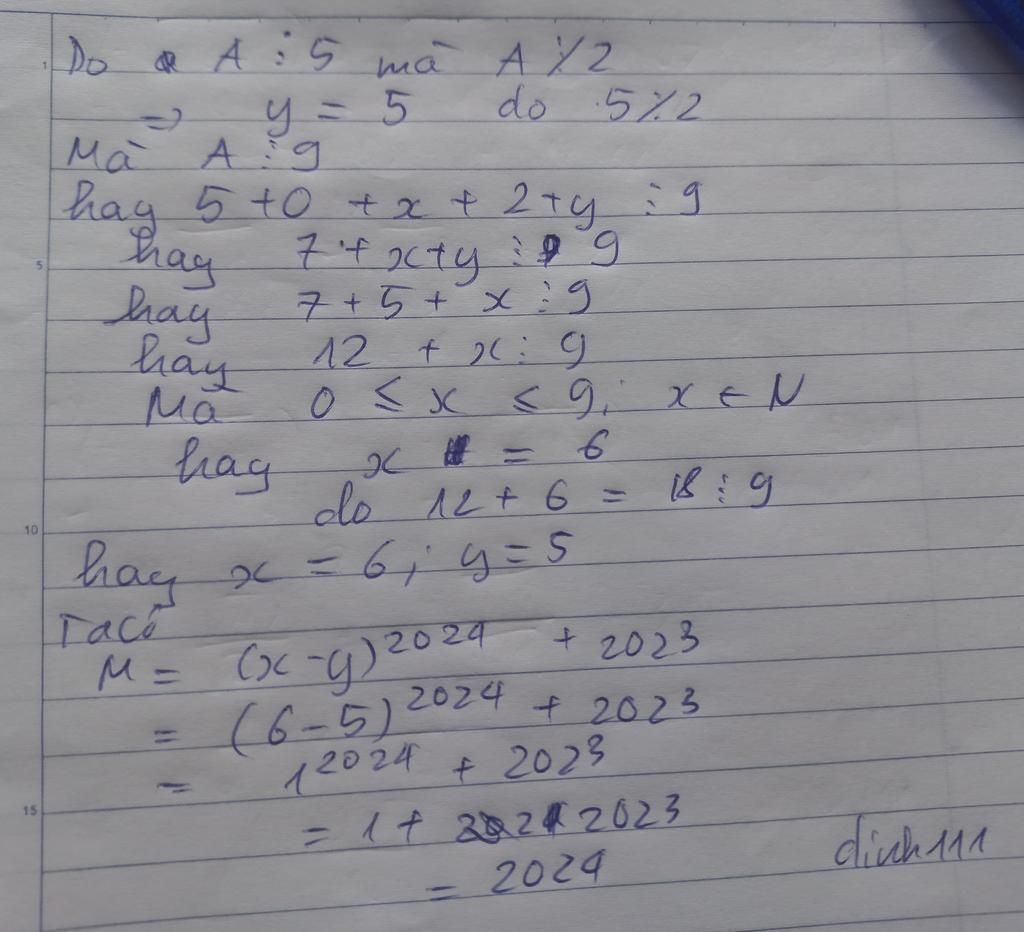 Do A ⋮ 5 mà A ⋮̸ 2
=> y = 5 do 5 ⋮̸ 2
Mà A ⋮ 9
hay 5 + 0 + x + 2 + y ⋮ 9
hay 7 + x + y ⋮ 9
hay 7 + 5 + x ⋮ 9
hay 12 + x ⋮ 9
Mà 0 ≤ x ≤ 9; x ∈ N
hay x = 6
do 12 + 6 = 18 ⋮ 9
hay x = 6; y = 5
Ta có
M = (x - y)^2024 + 2023
= (6 - 5)^2024 + 2023
= 1^2024 + 2023
= 1 + 2023
= 2024
dinh111
1
5
10
15